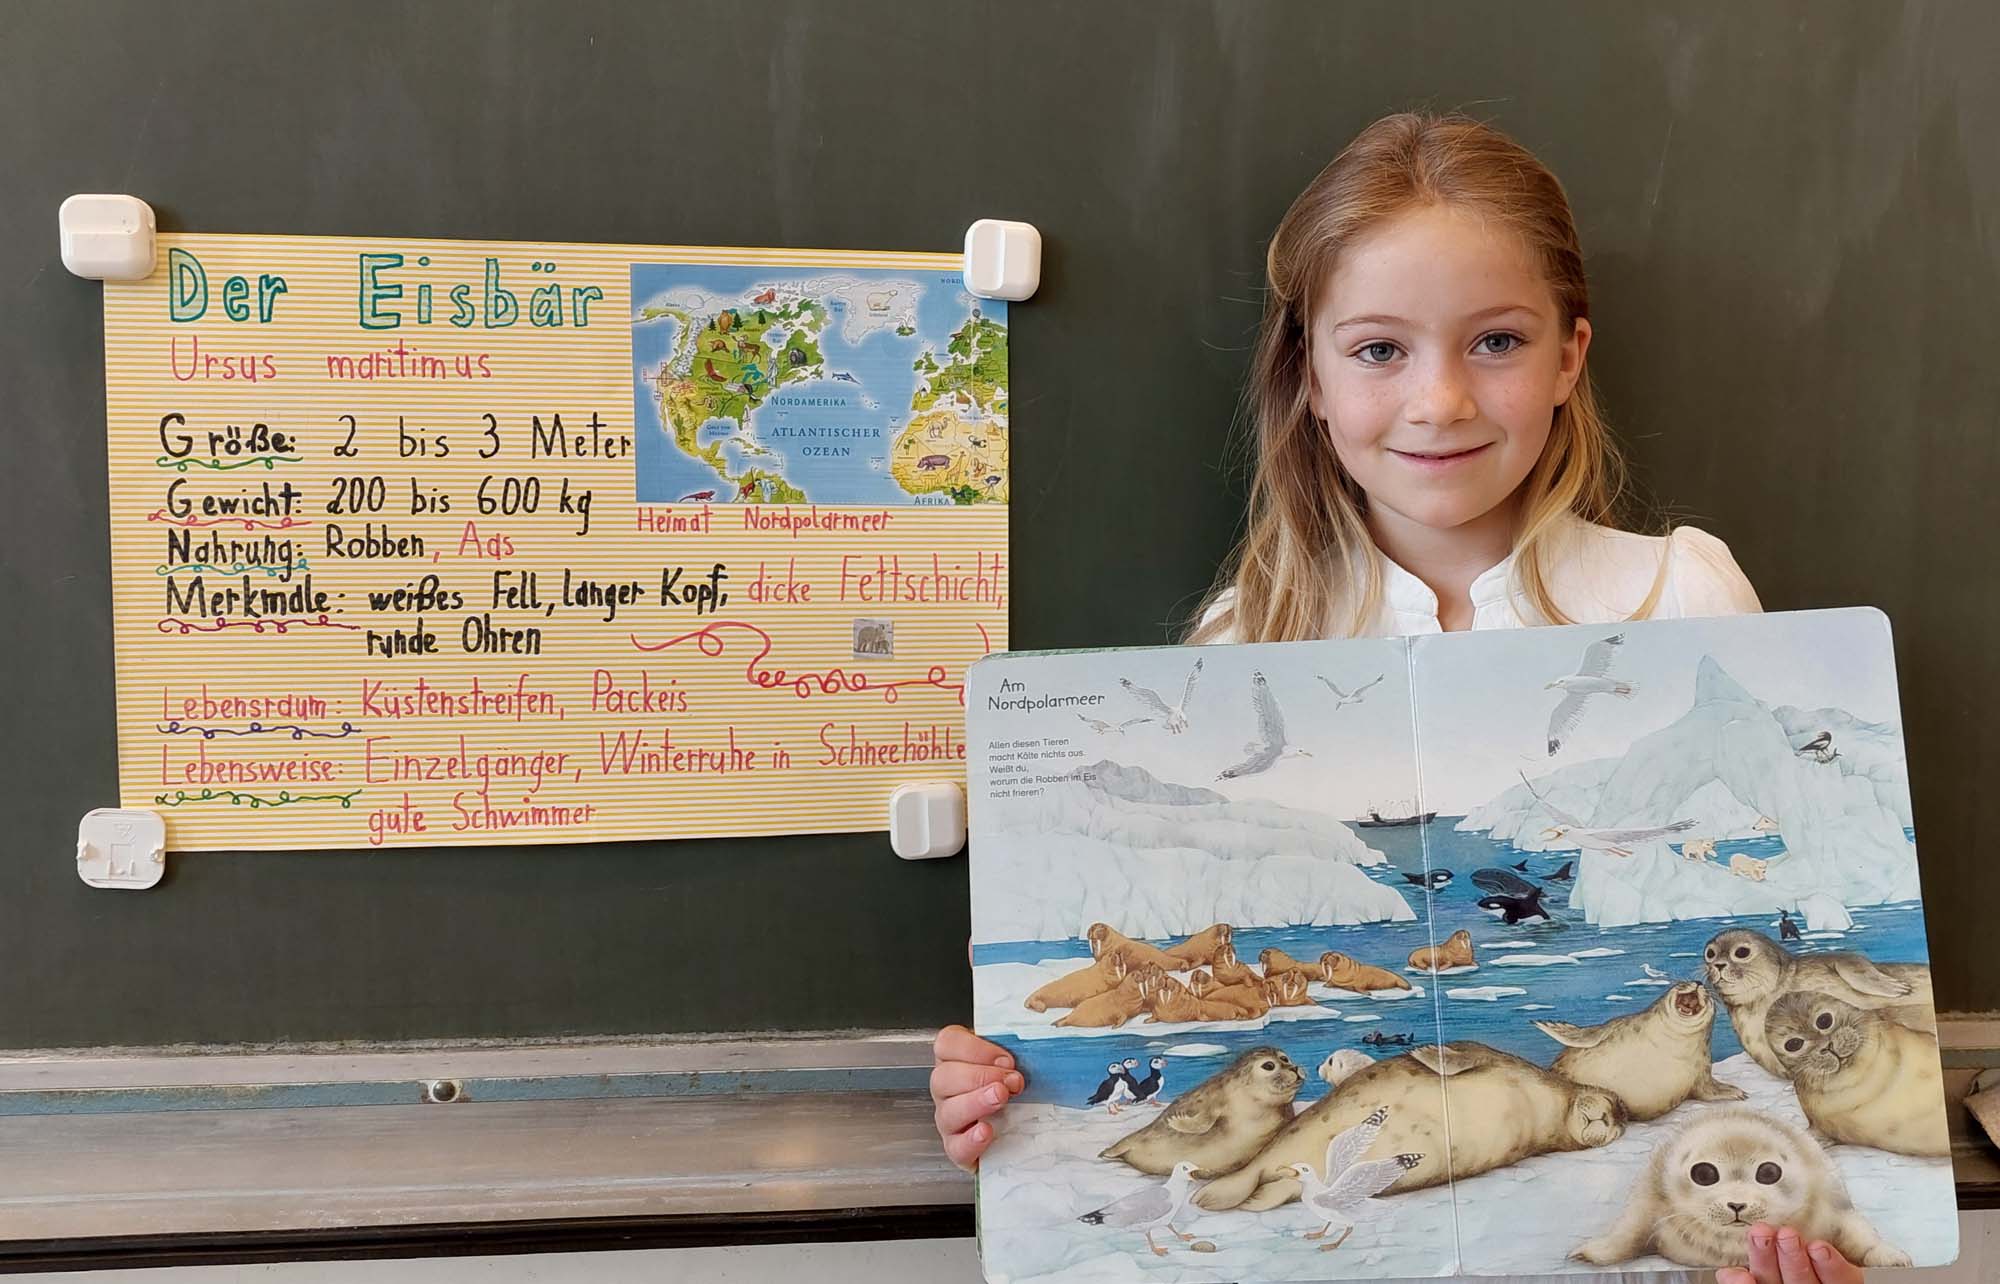 Der Eisbär
Ursus maritimus
Größe: 2 bis 3 Meter
Gewicht: 200 bis 600 kg
Nahrung: Robben, Aas
Merkmale: weißes Fell, langer Kopf, dicke Fettschicht,
runde Ohren
Lebensraum: Küstenstreifen, Packeis
Lebensweise: Einzelgänger, Winterruhe in Schneehöhle
gute Schwimmer
NORDAMERIKA
ATLANTISCHER
OZEAN
AFRIKA
Heimat Nordpolarmeer
Am
Nordpolarmeer
Allen diesen Tieren
macht Kälte nichts aus.
Weißt du,
worum die Robben im Eis
nicht frieren?